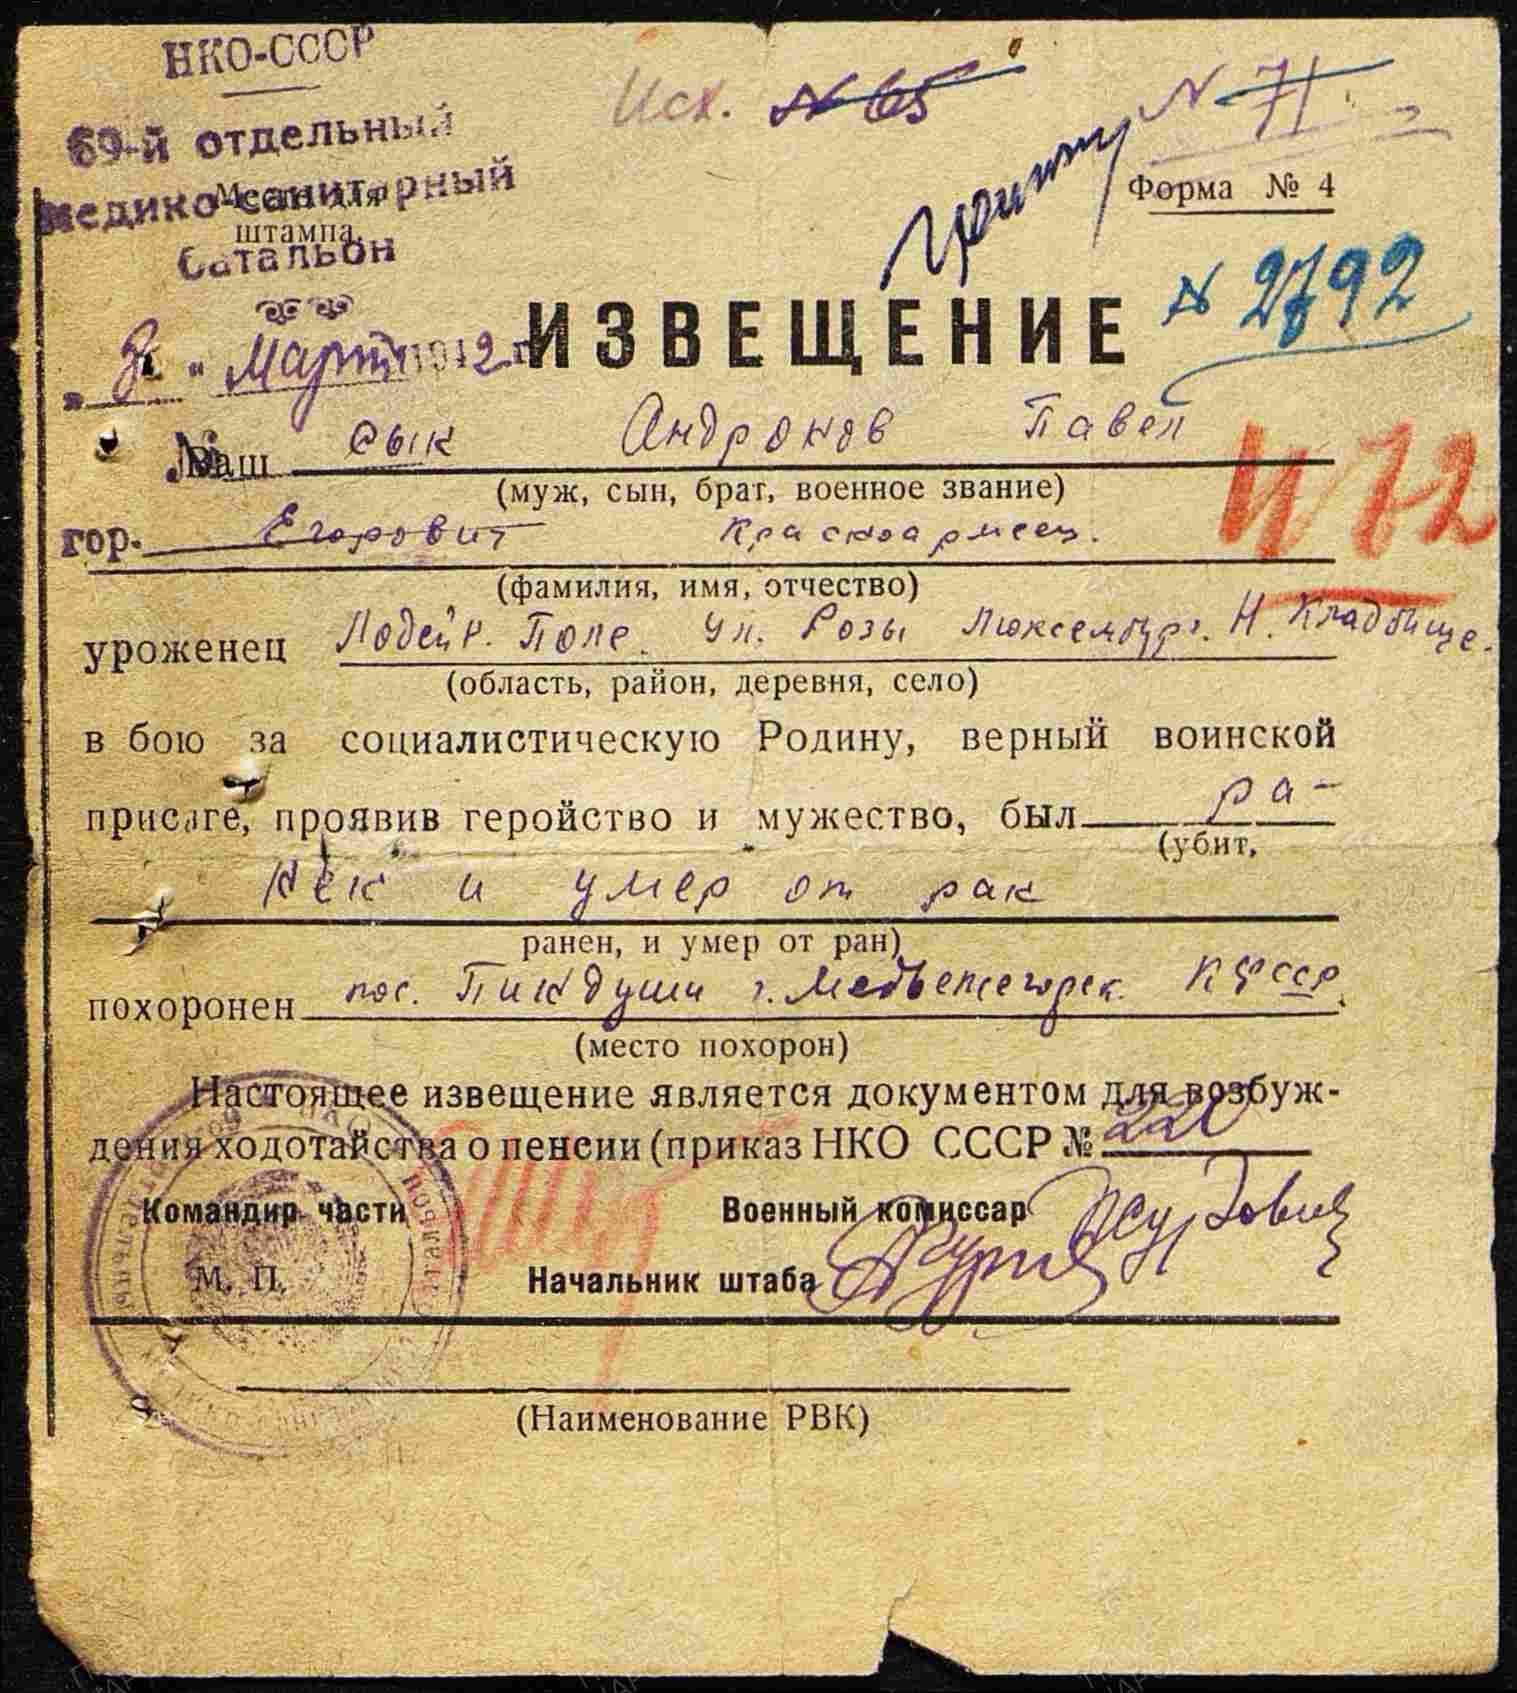 НКО-СССР
69-й отдельный
медико-санитарный
батальон
Место для
штампа
Исх. № 65
№ 71
Форма № 4
№ 2792
„ 8 “ Март 1942 г.
ИЗВЕЩЕНИЕ
Ваш сын Андронов Павел
(муж, сын, брат, военное звание)
№ 72
гор. Егорович Красноармеец.
(фамилия, имя, отчество)
уроженец Лодейн. Поле. Ул. Розы Люксембург. Н. Кладбище.
(область, район, деревня, село)
в бою за социалистическую Родину, верный воинской
присяге, проявив геройство и мужество, был ра-
(убит,
нен и умер от ран
ранен, и умер от ран)
похоронен пос. Пиндуши г. Медвежегорск КФССР.
(место похорон)
Настоящее извещение является документом для возбуж-
дения ходотайства о пенсии (приказ НКО СССР № 220
Командир части Военный комиссар
М. П. Начальник штаба
(Наименование РВК)